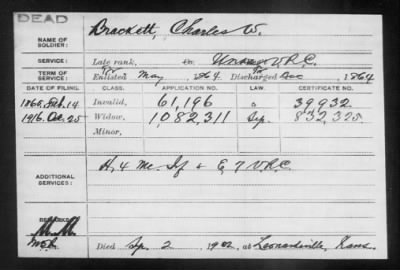 DEAD
NAME OF SOLDIER: Brackett, Charles W.
SERVICE: Late rank, Co. V.R.C.
TERM OF SERVICE: Enlisted May , 1864 Discharged Dec , 1864
DATE OF FILING. CLASS. APPLICATION NO. LAW. CERTIFICATE NO.
1865, Feb. 14 Invalid, 61,196 a 39932
1916, Oct. 25 Widow, 1,082,311 Sep. 832,325
Minor,
ADDITIONAL SERVICES: H, 4 Me. Inf & E, 7 V.R.C.
REMARKS:
Died Sep. 2, 1902, at Leonardville, Kans.